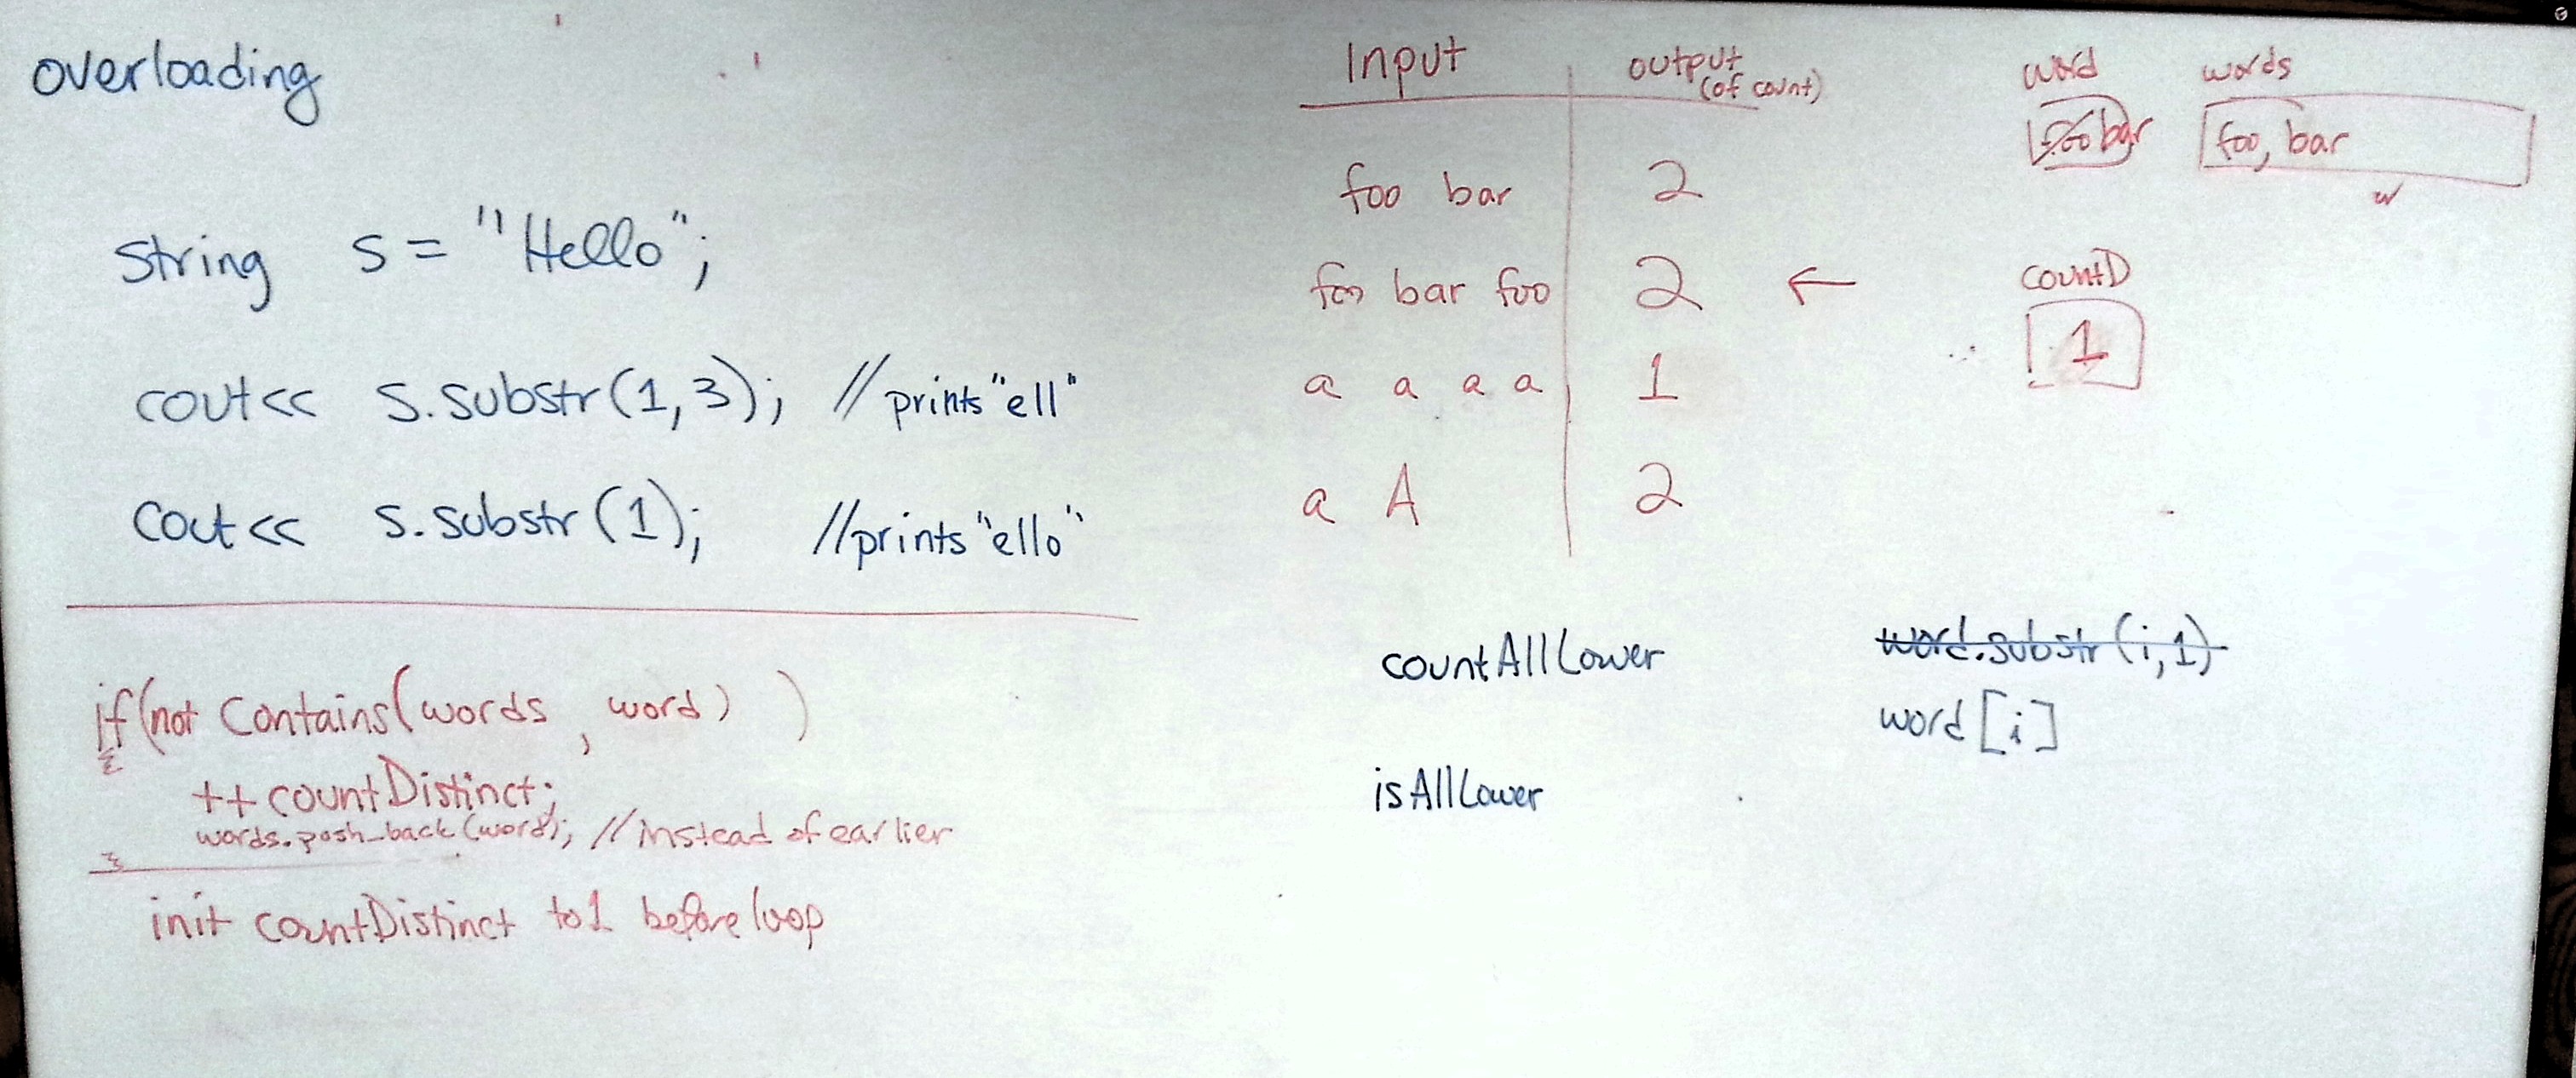 overloading
string s = "Hello";
cout<< s.substr(1,3); //prints "ell"
cout<< s.substr(1); //prints "ello"
if(not contains(words, word) )
{
++countDistinct;
words.push_back(word); //instead of earlier
}
init countDistinct to 1 before loop
Input output
(of count)
foo bar 2
foo bar foo 2 ←
a a a a 1
a A 2
word words
foo bar foo, bar
countD
1
countAllLower word.substr(i,1)
word[i]
isAllLower